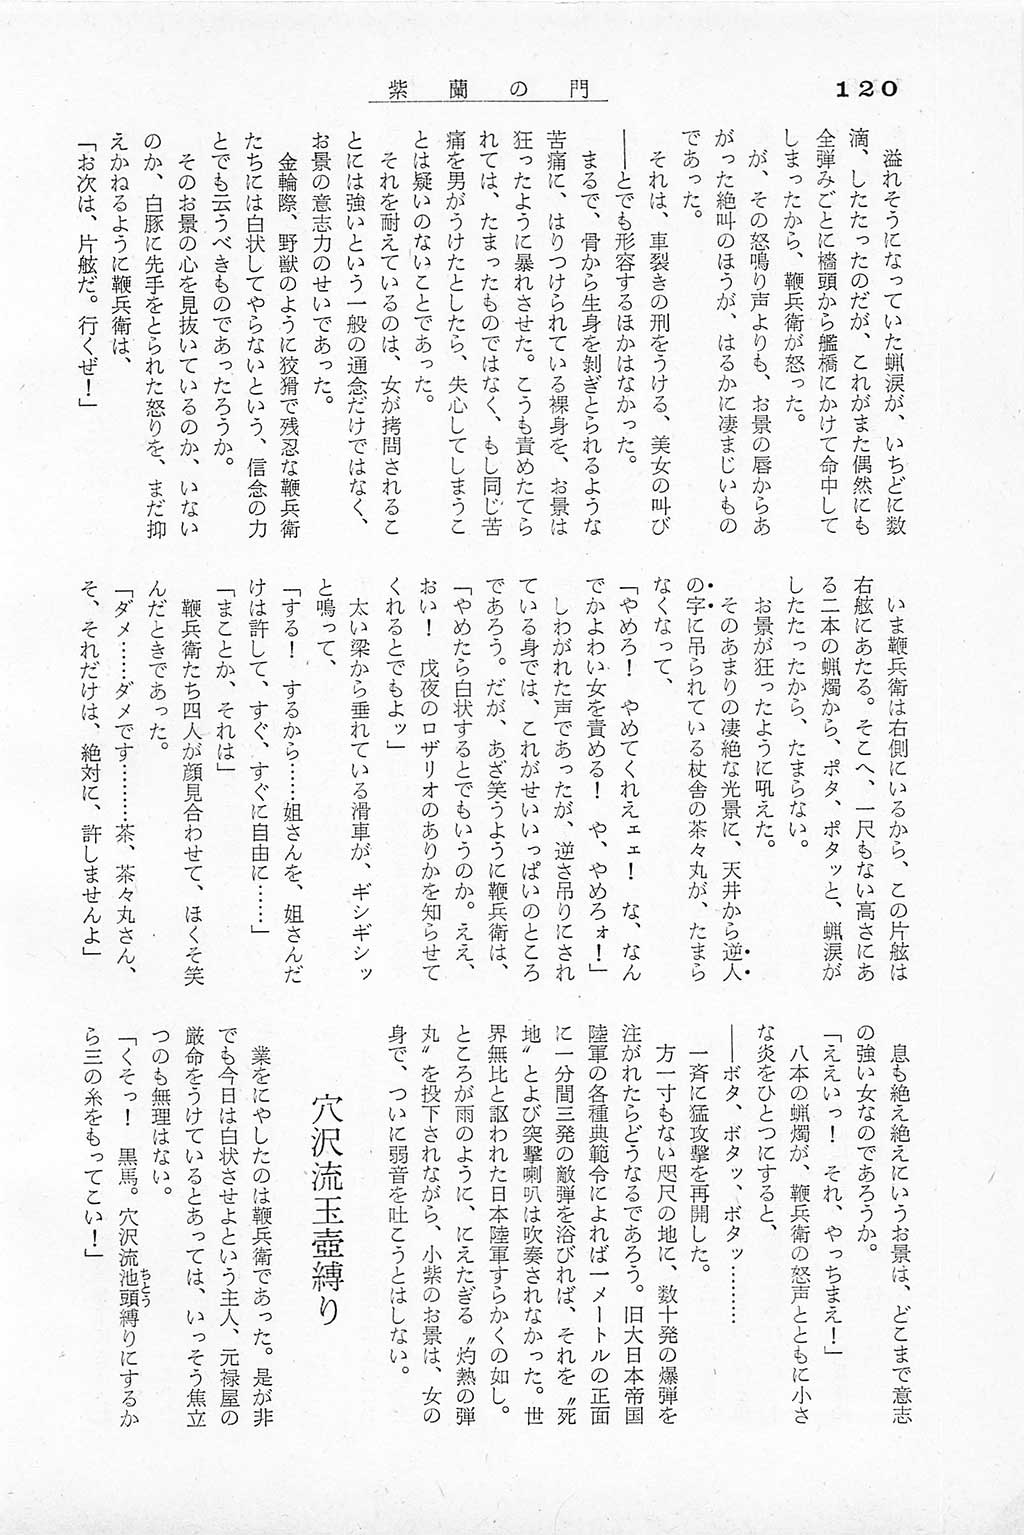 120
紫蘭の門
溢れそうになっていた蝋涙が、いちどに数
滴、したたったのだが、これがまた偶然にも
全弾みごとに檣頭から艦橋にかけて命中して
しまったから、鞭兵衛が怒った。
が、その怒鳴り声よりも、お景の唇からあ
がった絶叫のほうが、はるかに凄まじいもの
であった。
それは、車裂きの刑をうける、美女の叫び
――とでも形容するほかはなかった。
まるで、骨から生身を剝ぎとられるような
苦痛に、はりつけられている裸身を、お景は
狂ったように暴れさせた。こうも責めたてら
れては、たまったものではなく、もし同じ苦
痛を男がうけたとしたら、失心してしまうこ
とは疑いのないことであった。
それを耐えているのは、女が拷問されるこ
とには強いという一般の通念だけではなく、
お景の意志力のせいであった。
金輪際、野獣のように狡猾で残忍な鞭兵衛
たちには白状してやらないという、信念の力
とでも云うべきものであったろうか。
そのお景の心を見抜いているのか、いない
のか、白豚に先手をとられた怒りを、まだ抑
えかねるように鞭兵衛は、
「お次は、片舷だ。行くぜ！」
いま鞭兵衛は右側にいるから、この片舷は
右舷にあたる。そこへ、一尺もない高さにあ
る二本の蝋燭から、ポタ、ポタッと、蝋涙が
したたったから、たまらない。
お景が狂ったように吼えた。
そのあまりの凄絶な光景に、天井から逆人
の字に吊られている杖舎の茶々丸が、たまら
なくなって、
「やめろ！　やめてくれえェェ！　な、なん
でかよわい女を責める！　や、やめろォ！」
しわがれた声であったが、逆さ吊りにされ
ている身では、これがせいいっぱいのところ
であろう。だが、あざ笑うように鞭兵衛は、
「やめたら白状するとでもいうのか。ええ、
おい！　戊夜のロザリオのありかを知らせて
くれるとでもよッ」
太い梁から垂れている滑車が、ギシギシッ
と鳴って、
「する！　するから……姐さんを、姐さんだ
けは許して、すぐ、すぐに自由に……」
「まことか、それは」
鞭兵衛たち四人が顔見合わせて、ほくそ笑
んだときであった。
「ダメ……ダメです…………茶、茶々丸さん、
そ、それだけは、絶対に、許しませんよ」
息も絶え絶えにいうお景は、どこまで意志
の強い女なのであろうか。
「ええいっ！　それ、やっちまえ！」
八本の蝋燭が、鞭兵衛の怒声とともに小さ
な炎をひとつにすると、
――ボタ、ボタッ、ボタッ…………
一斉に猛攻撃を再開した。
方一寸もない咫尺の地に、数十発の爆弾を
注がれたらどうなるであろう。旧大日本帝国
陸軍の各種典範令によれば一メートルの正面
に一分間三発の敵弾を浴びれば、それを〝死
地〟とよび突撃喇叭は吹奏されなかった。世
界無比と謳われた日本陸軍すらかくの如し。
ところが雨のように、にえたぎる〝灼熱の弾
丸〟を投下されながら、小紫のお景は、女の
身で、ついに弱音を吐こうとはしない。
穴沢流玉壺縛り
業をにやしたのは鞭兵衛であった。是が非
でも今日は白状させよという主人、元禄屋の
厳命をうけているとあっては、いっそう焦立
つのも無理はない。
「くそっ！　黒馬。穴沢流池頭縛りにするか
ちとう
ら三の糸をもってこい！」